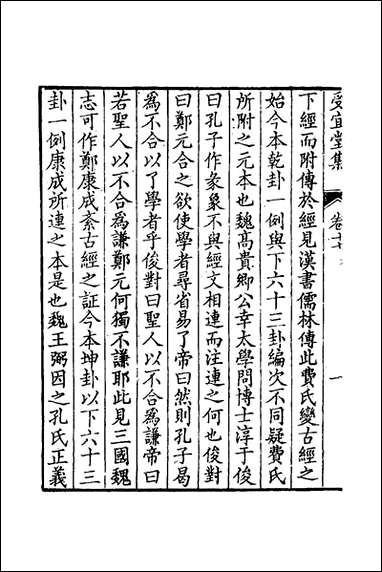 受宜堂集 卷十七 一
下經而附傳於經見漢書儒林傳此費氏變古經之
始今本乾卦一例與下六十三卦編次不同疑費氏
所附之元本也魏高貴卿公幸太學問博士淳于俊
曰孔子作彖象不與經文相連而注連之何也俊對
曰鄭元合之欲使學者尋省易了帝曰然則孔子曷
為不合以了學者乎俊對曰聖人以不合為謙帝曰
若聖人以不合為謙鄭元何獨不謙耶此見三國魏
志可作鄭康成紊古經之証今本坤卦以下六十三
卦一例康成所連之本是也魏王弼因之孔氏正義